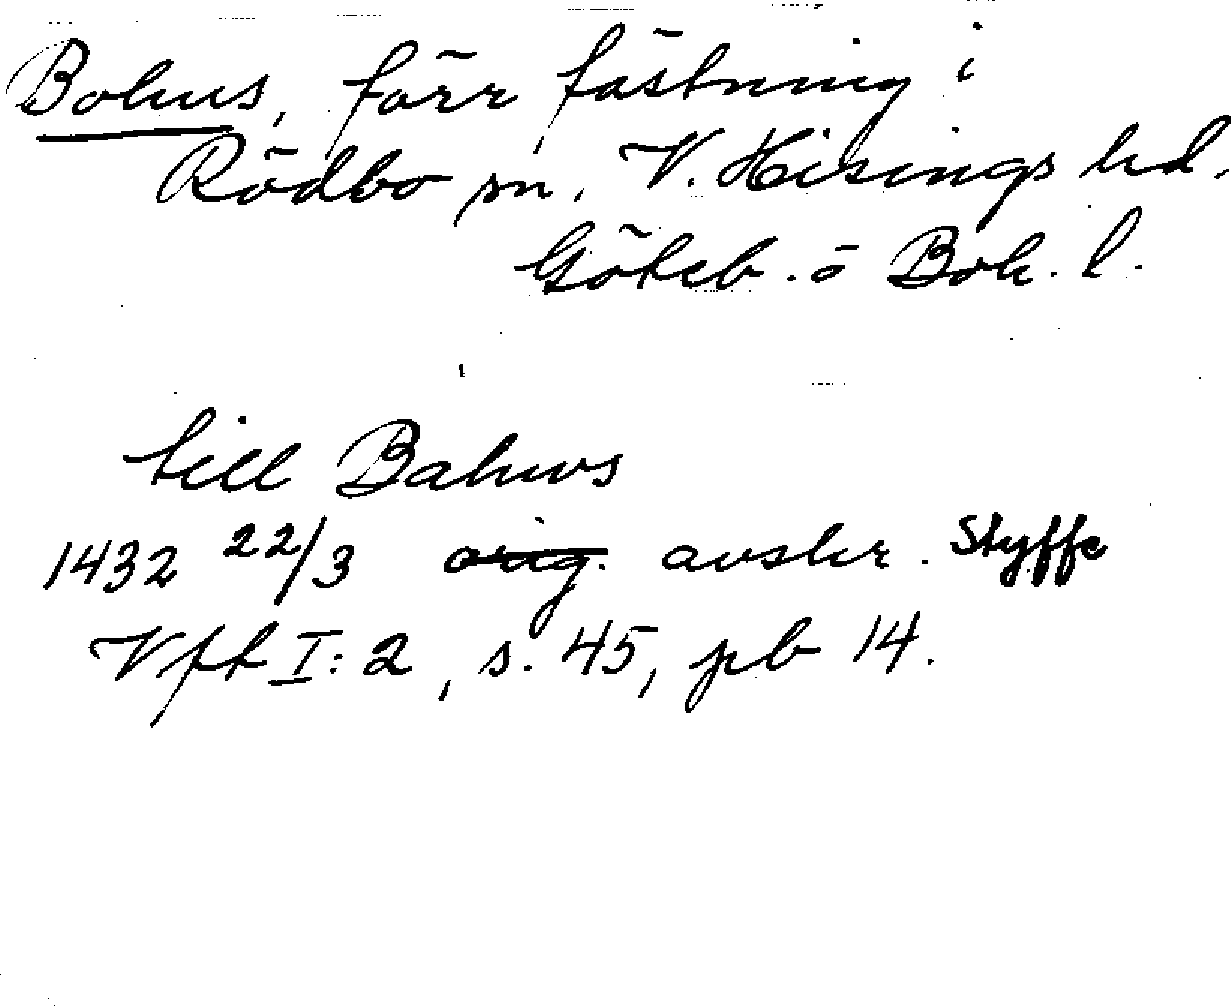 Bohus, förr fästning i
Rödbo sn, V. Hisings hd,
Göteb. o Boh. l.
till Bahws
1432 22/3 orig. avskr. Styffe
Vfl I:2, s. 45, pb 14.